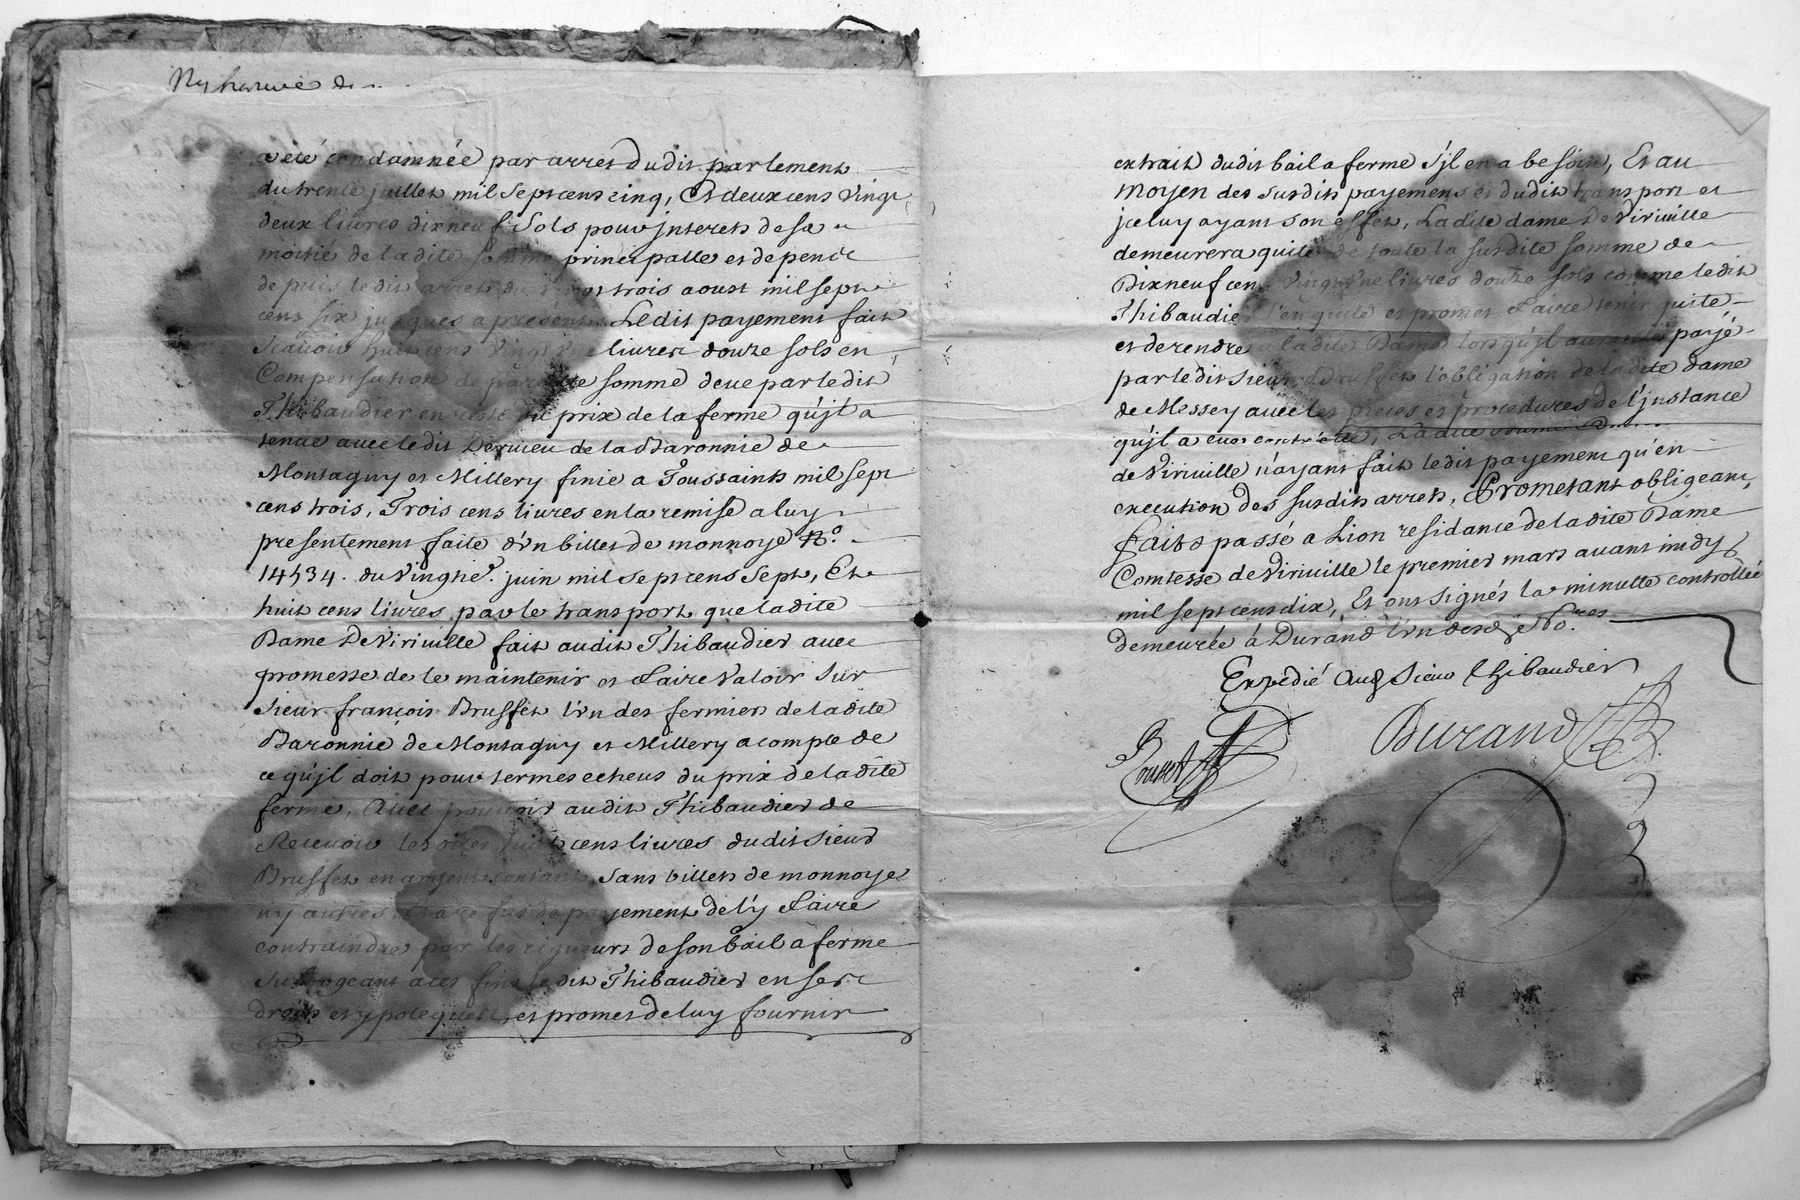 a eté condamnée par arrest dudit parlement
du trente juillet mil sept cens cinq, Et deux cens vingt
deux livres dixneuf sols pour jnterets de sa
moitié de ladite somme principalle et depend
depuis ledit arrest du vingt trois aoust mil sept
cens six jusques a present, Ledit payement fait
scauoir huit cens vingt vne livres douze sols en
Compensation de pareille somme deue par ledit
Thibaudier en reste du prix de la ferme qu'jl a
tenue auec ledit Dervieu de la Baronnie de
Montagny et Millery finie a Toussaints mil sept
cens trois, Trois cens livres en la remise a luy
presentement faite d'vn billet de monnoye N.º
14534. du vingtie. juin mil sept cens sept, Et
huit cens livres par le transport que ladite
Dame De Viriuille fait audit Thibaudier auec
promesse de le maintenir et faire valoir sur
sieur françois Brusset l'vn des fermiers de ladite
Baronnie de Montagny et Millery acompte de
ce qu'jl doit pour termes echeus du prix de ladite
ferme, Auec pouuoir audit Thibaudier de
Receuoir lesdites huit cens livres dudit sieur
Brusset en argent contant, sans billets de monnoye
ny autres, Et a refus de payement de l'y faire
contraindre par les rigueurs de son bail a ferme
subrogeant a ces fins ledit Thibaudier en ses
droits et ypoteques, et promet de luy fournir
extrait dudit bail a ferme s'jl en a besoin, Et au
moyen des susdits payemens et dudit transport et
jceluy ayant son effet, Ladite dame De Viriuille
demeurera quite de toute la susdite somme de
Dixneuf cens vingt vne livres douze sols comme ledit
Thibaudier l'en quite et promet faire tenir quite
et de rendre a ladite Dame lorsqu'jl aura été payé
par ledit sieur Brusset l'obligation de ladite dame
de Messey auec les pieces et procedures de l'jnstance
qu'jl a eue contr'elle, Ladite Dame
de Viriuille n'ayant fait ledit payement qu'en
execution des susdits arrets, Prometant obligeant,
Fait & passé a Lion residance de ladite Dame
Comtesse de Viriuille le premier mars auant midy
mil sept cens dix, Et ont signés la minutte controllée
demeurée à Durand l'vn desd. No.res
Expedié aud. Sieur Thibaudier
Durand